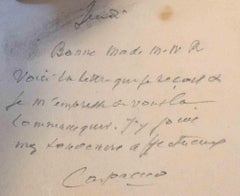 Jeudi
Bonne Made M.M.R
Voici la lettre que je reçois et
je m'empresse de vous la
communiquer. J'y joins
mes souvenirs affectueux
Carpaccio